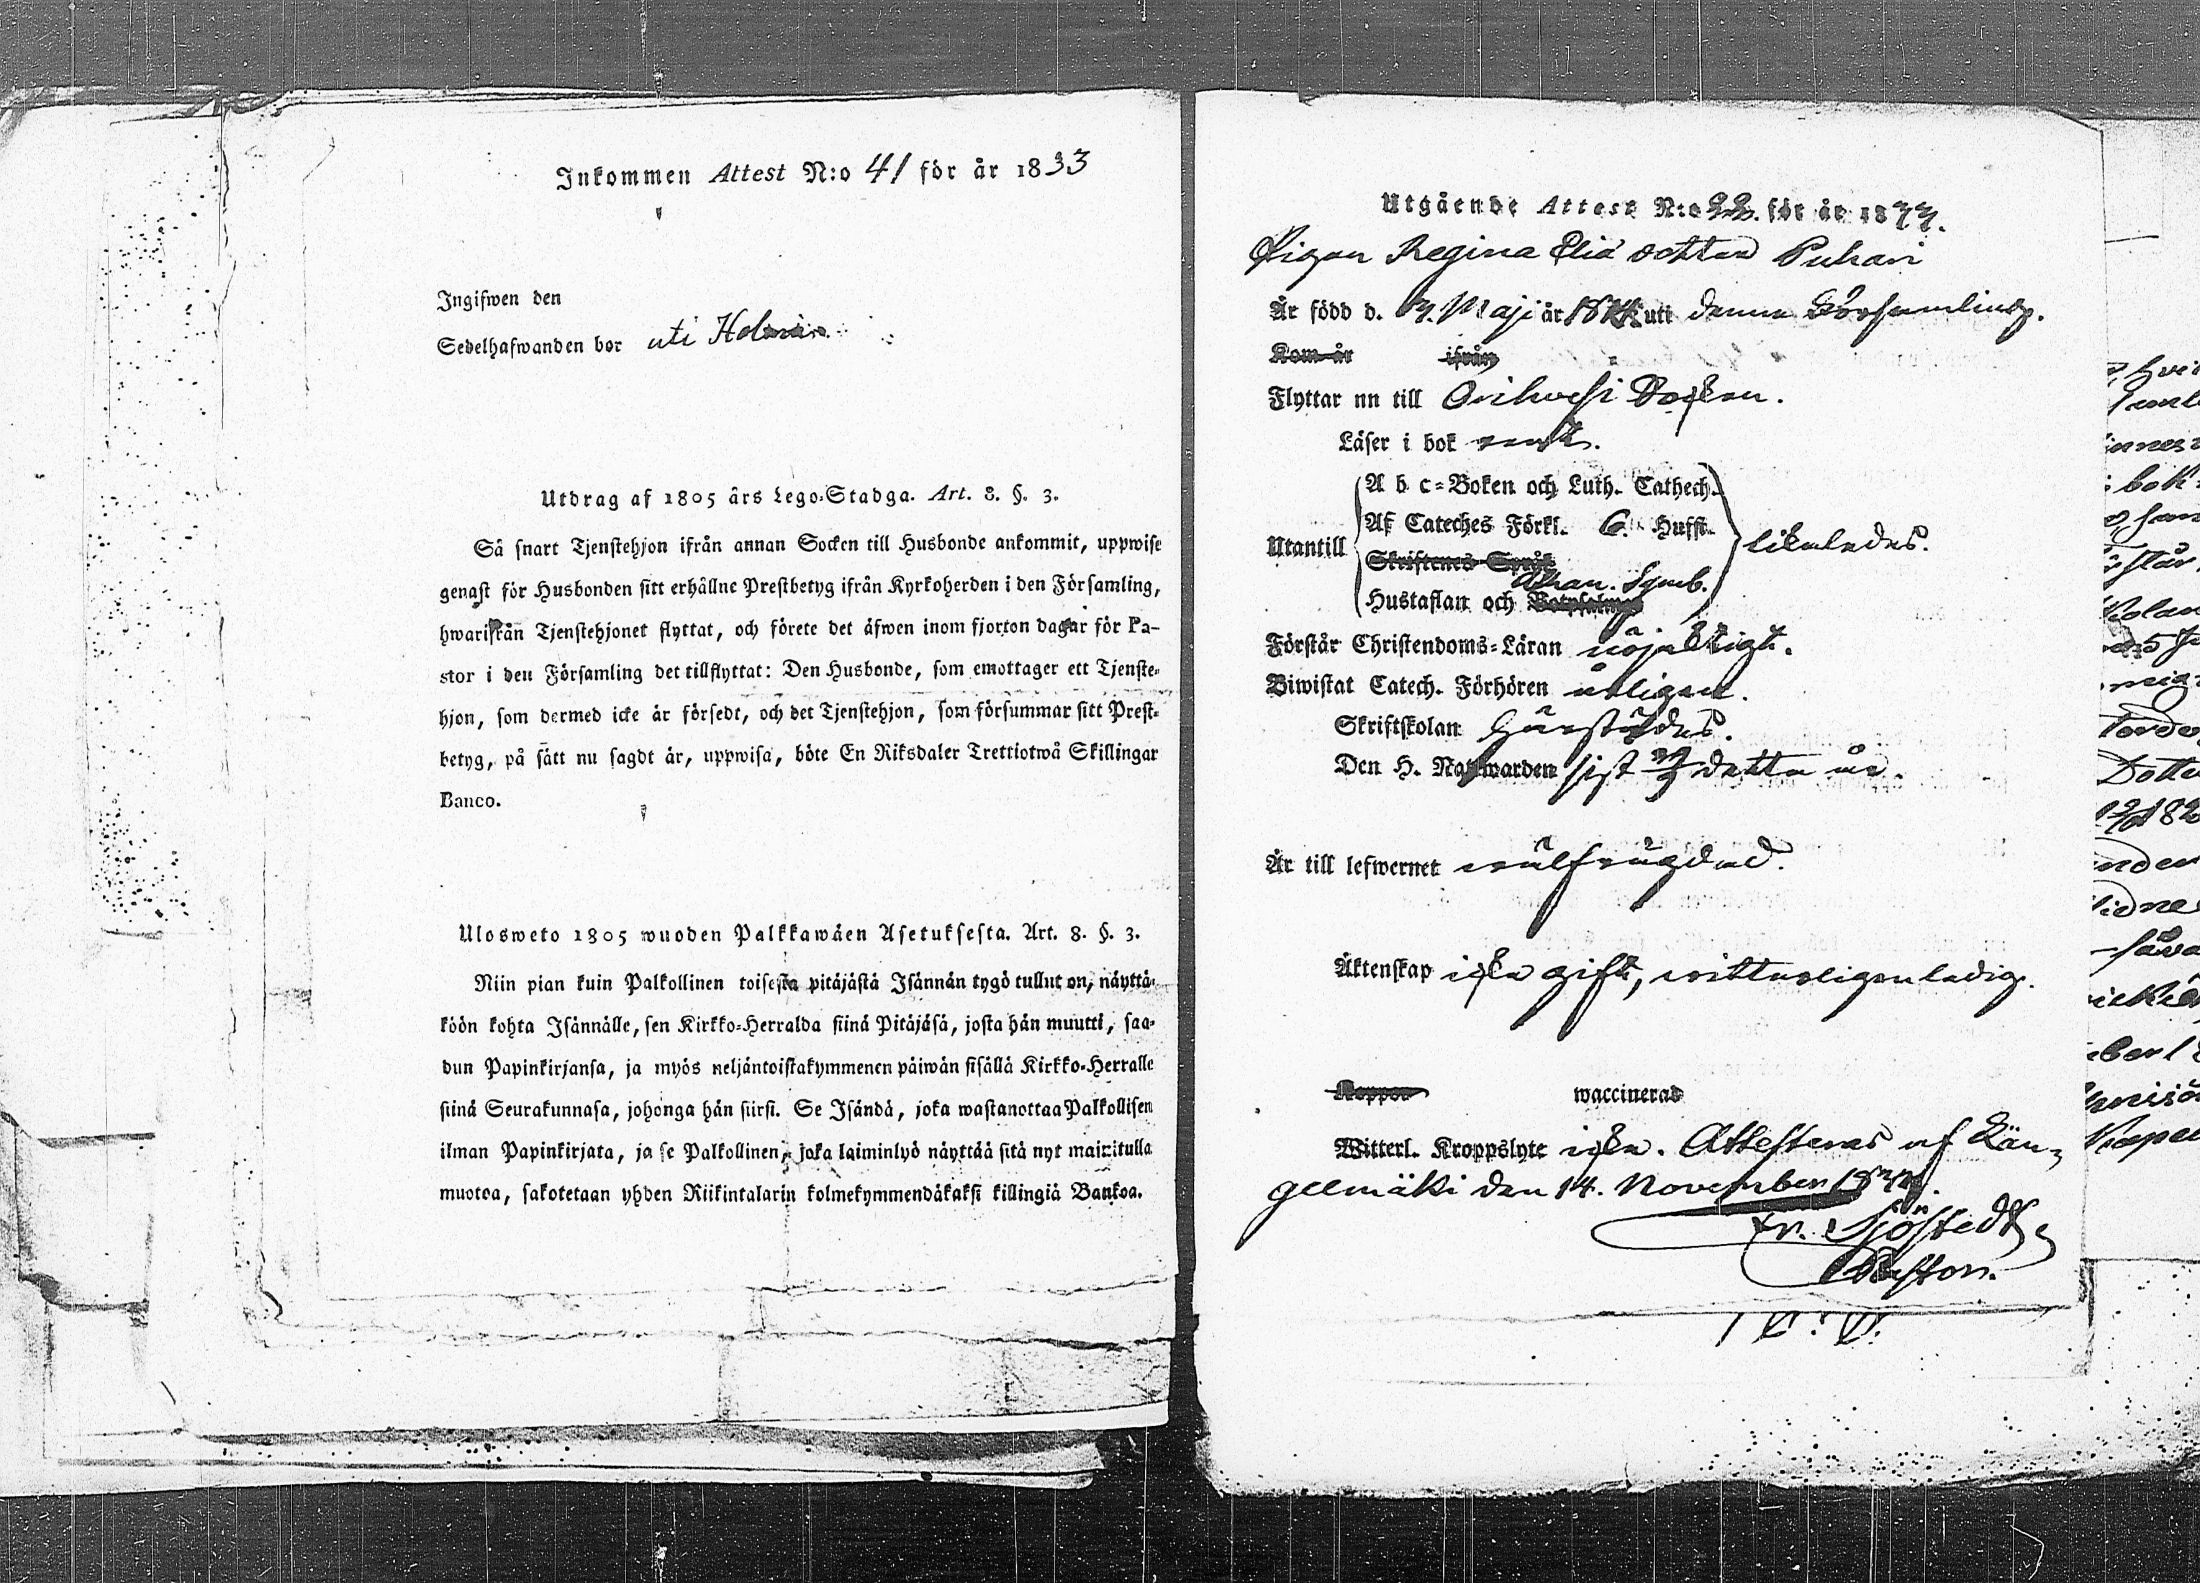 Inkommen Attest N:o 41 för år 1833
Ingifwen den
Sedelhafwanden bor uti
Utdrag af 1805 års Lego-Stadga. Art. 8. §. 3.
Så snart Tjenstehjon ifrån annan Socken till Husbonde ankommit, uppwise
genast för Husbonden sitt erhållne Prestbetyg ifrån Kyrkoherden i den Församling,
hwarifrån Tjenstehjonet flyttat, och förete det äfwen inom fjorton dagar för Pa-
stor i den Församling det tillflyttat: Den Husbonde, som emottager ett Tjenste-
hjon, som dermed icke är försedt, och det Tjenstehjon, som försummar sitt Prest-
betyg, på sätt nu sagdt är, uppwisa, böte En Riksdaler Trettiotwå Skillingar
Banco.
Ulosweto 1805 wuoden Palkkawäen Asetuksesta. Art. 8. §. 3.
Niin pian kuin Palkollinen toisesta pitäjästä Isännän tygö tullut on, näyttä-
köön kohta Isännälle, sen Kirkko-Herralda siinä Pitäjäsä, josta hän muutti, saa-
dun Papinkirjansa, ja myös neljäntoistakymmenen päiwän sisällä Kirkko-Herralle
siinä Seurakunnasa, johonga hän siirsi. Se Isändä, joka wastanottaa Palkollisen
ilman Papinkirjata, ja se Palkollinen, joka laiminlyö näyttää sitä nyt mainitulla
muotoa, sakotetaan yhden Riikintalarin kolmekymmendäkaksi killingiä Bankoa.
Utgående Attest N:o 22. för år 1833.
Pigan Regina Elia dotter Puhari
Är född d. Maji år uti denna Församling.
Kom år ifrån
Flyttar nu till Orihvesi Socken.
Läser i bok rent.
A b c-Boken och Luth. Cathech.
Af Cateches Förkl. 6. Hufst.
Utantill likaledes.
Skriftenes Språk
Athan. Symb.
Hustaflan och Botpsalmer
Förstår Christendoms-Läran nöjaktigt.
Biwistat Catech. Förhören årligen.
Skriftskolan härstädes.
Den H. Nattwarden sist detta år.
Är till lefwernet wälfrägdad.
Äktenskap icke gift, witterligen ledig.
Koppor waccinerad
Witterl. Kroppslyte icke. Attesteras af Län-
gelmäki den 14. November 1833.
Fr. Sjöstedt
Pastor.